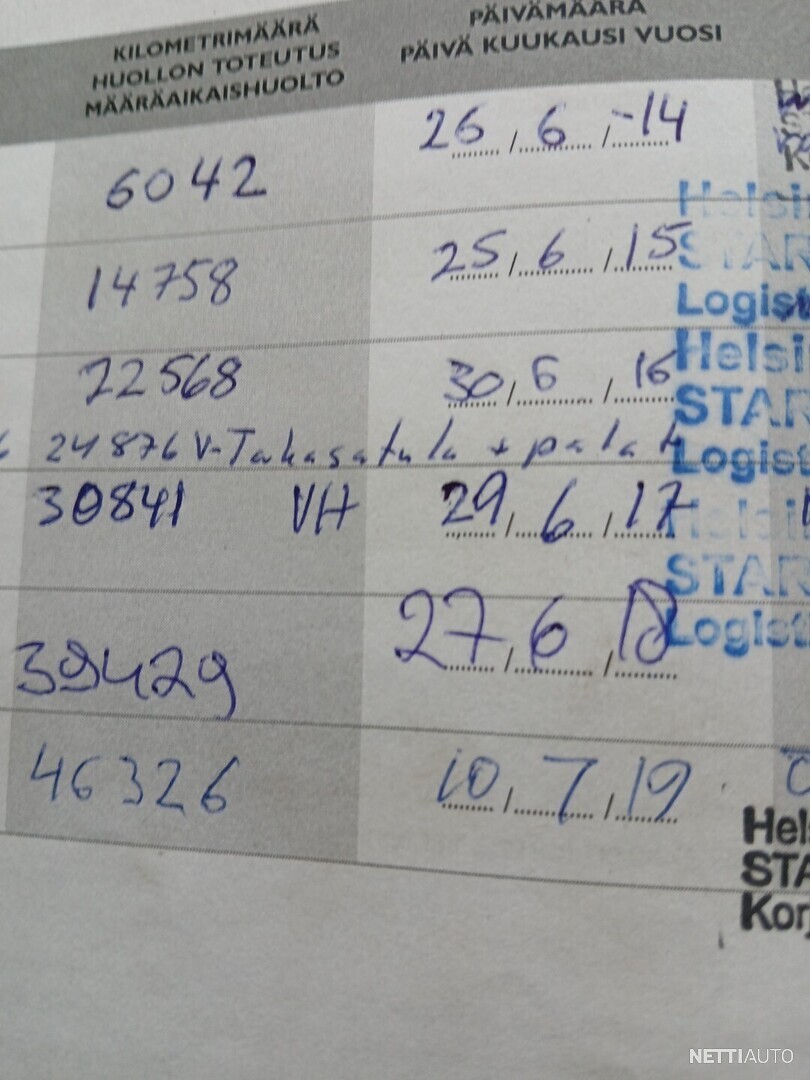 KILOMETRIMÄÄRÄ
HUOLLON TOTEUTUS
MÄÄRÄAIKAISHUOLTO
PÄIVÄMÄÄRÄ
PÄIVÄ KUUKAUSI VUOSI
6042 26 / 6 / -14
14758 25 / 6 / 15
Helsi
STAR
Logist
22568 30 / 6 / 16
Helsi
STAR
Logist
24876 V-Takasatula + palat
30841 VH 29 / 6 / 17
Helsi
STAR
Logist
39429 27 / 6 / 18
46326 10 / 7 / 19
Hel
STA
Kor
NETTIAUTO